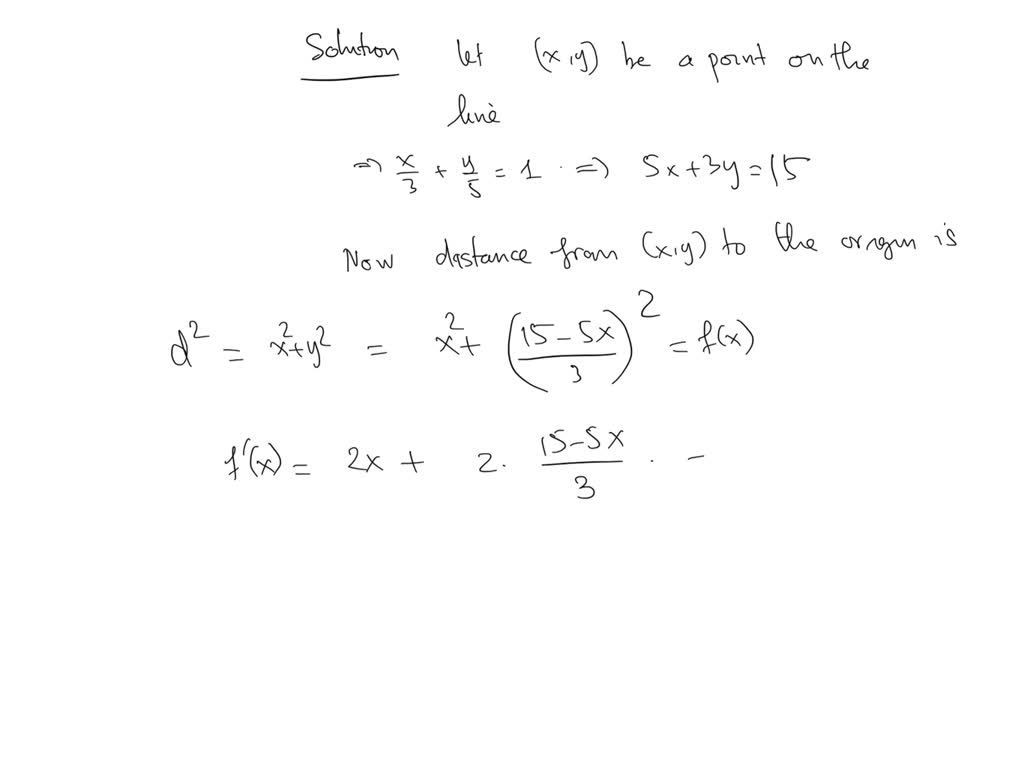 Solution let (x,y) be a point on the
line
=> x/3 + y/5 = 1 . => 5x+3y=15
Now dastance from (x,y) to the origin is
d² = x²+y² = x²+ ((15-5x)/3)² = f(x)
f'(x) = 2x + 2. (15-5x)/3 . -